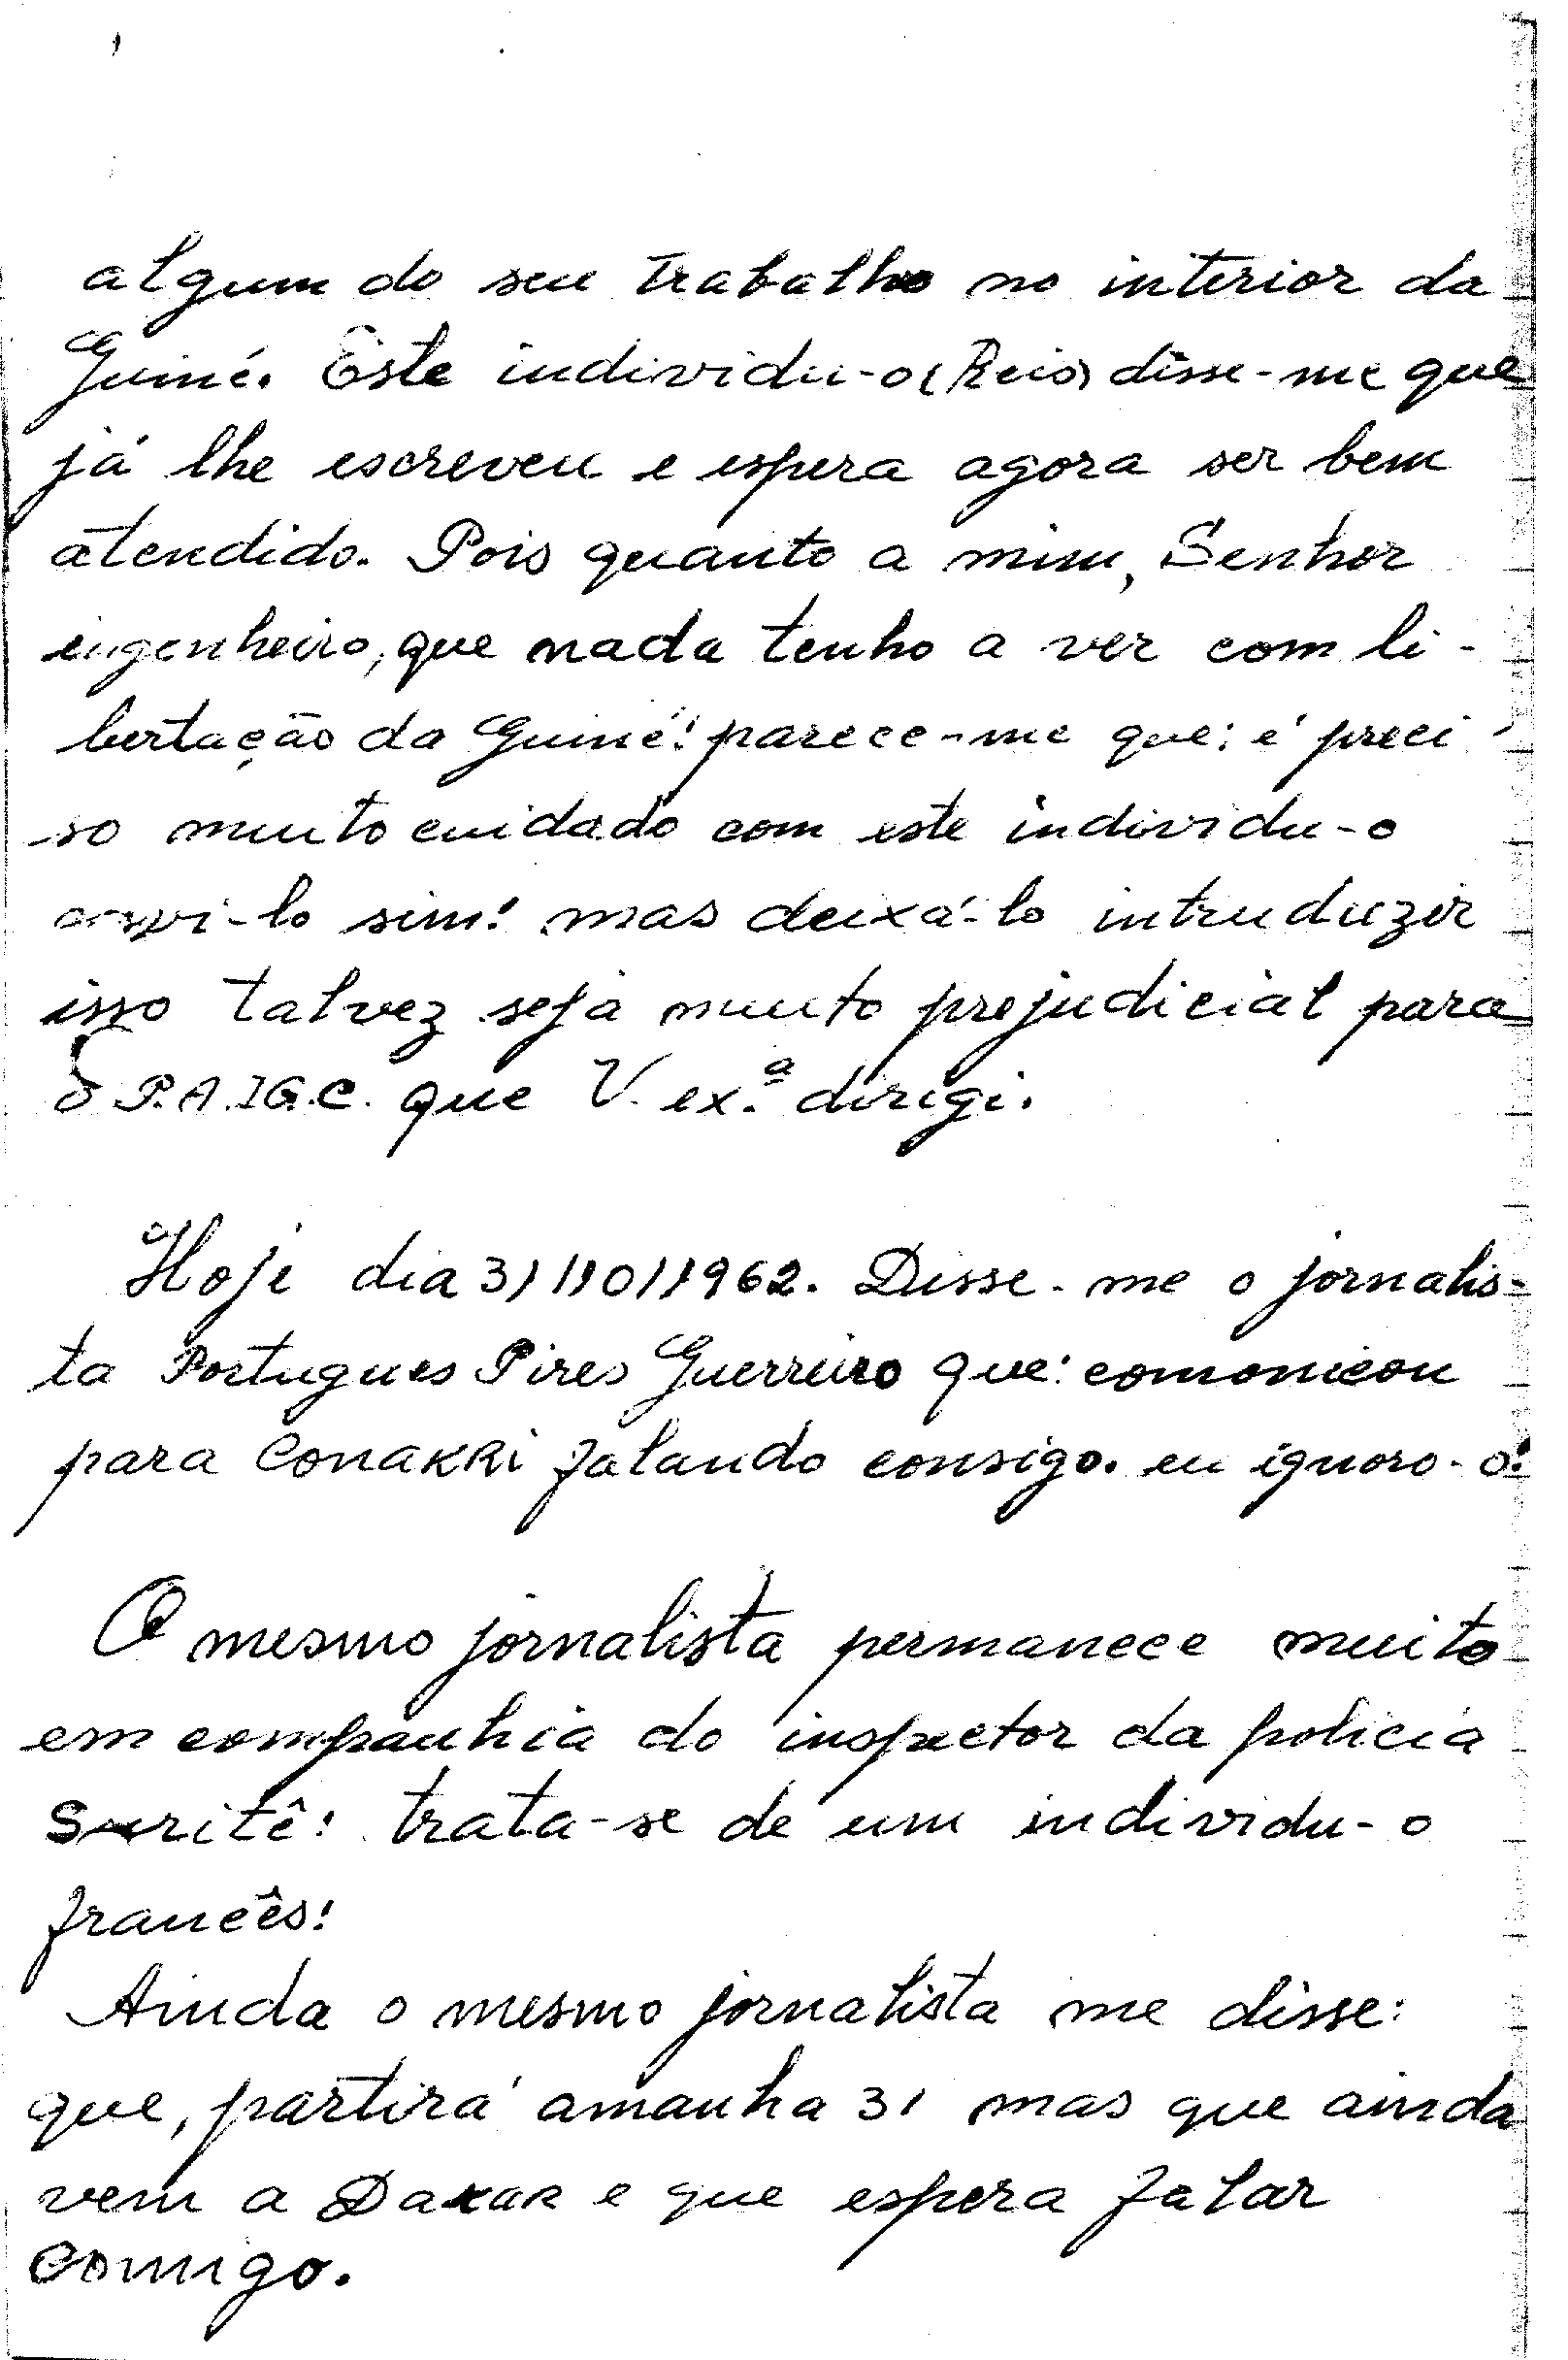 algum do seu trabalho no interior da
Guiné. Este individu-o (Reis) disse-me que
já lhe escreveu e espera agora ser bem
atendido. Pois quanto a mim, Senhor
engenheiro, que nada tenho a ver com li-
bertação da Guiné! parece-me que: é preci-
so muito cuidado com este individu-o
ouvi-lo sim! mas deixá-lo intruduzir
isso talvez seja muito prejudicial para
o P.A.IG.C. que V. ex.ª dirigi.
Hoje dia 31/10/1962. Disse-me o jornalis-
ta Portugues Pires Guerreiro que: comonicou
para CONAKRi falando consigo. eu ignoro-o!
O mesmo jornalista permanece muito
em companhia do inspector da policia
Suritê! trata-se de um individu-o
francês!
Ainda o mesmo jornalista me disse:
que, partirá amanha 31 mas que ainda
vem a DaKAR e que espera falar
comigo.